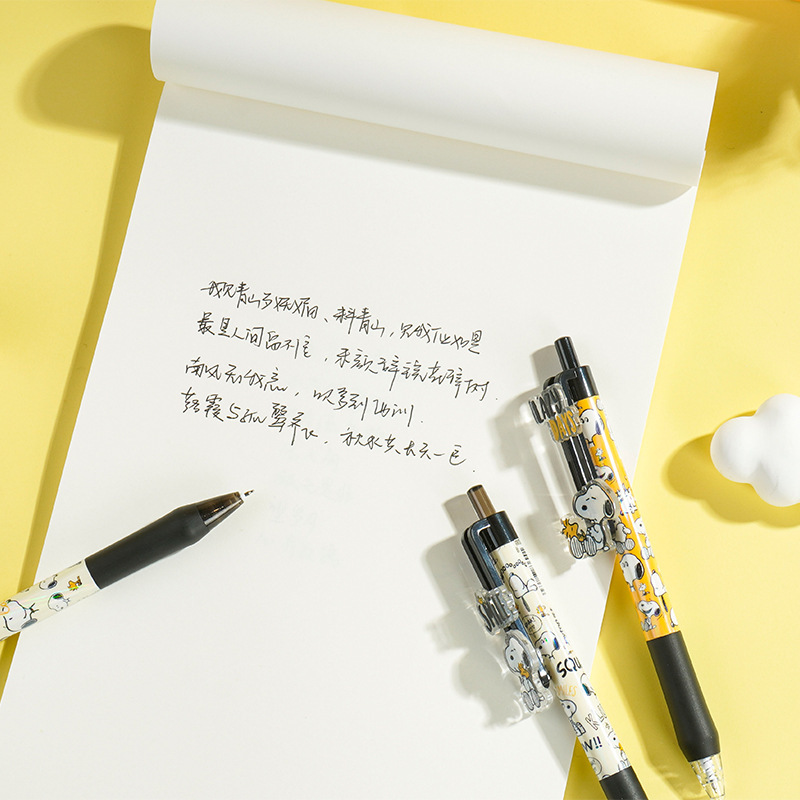 我见青山多妩媚、料青山,见我应如是
最是人间留不住,朱颜辞镜花辞树.
南风知我意,吹梦到西洲.
落霞与孤鹜齐飞,秋水共长天一色.
LAZY
DAYS